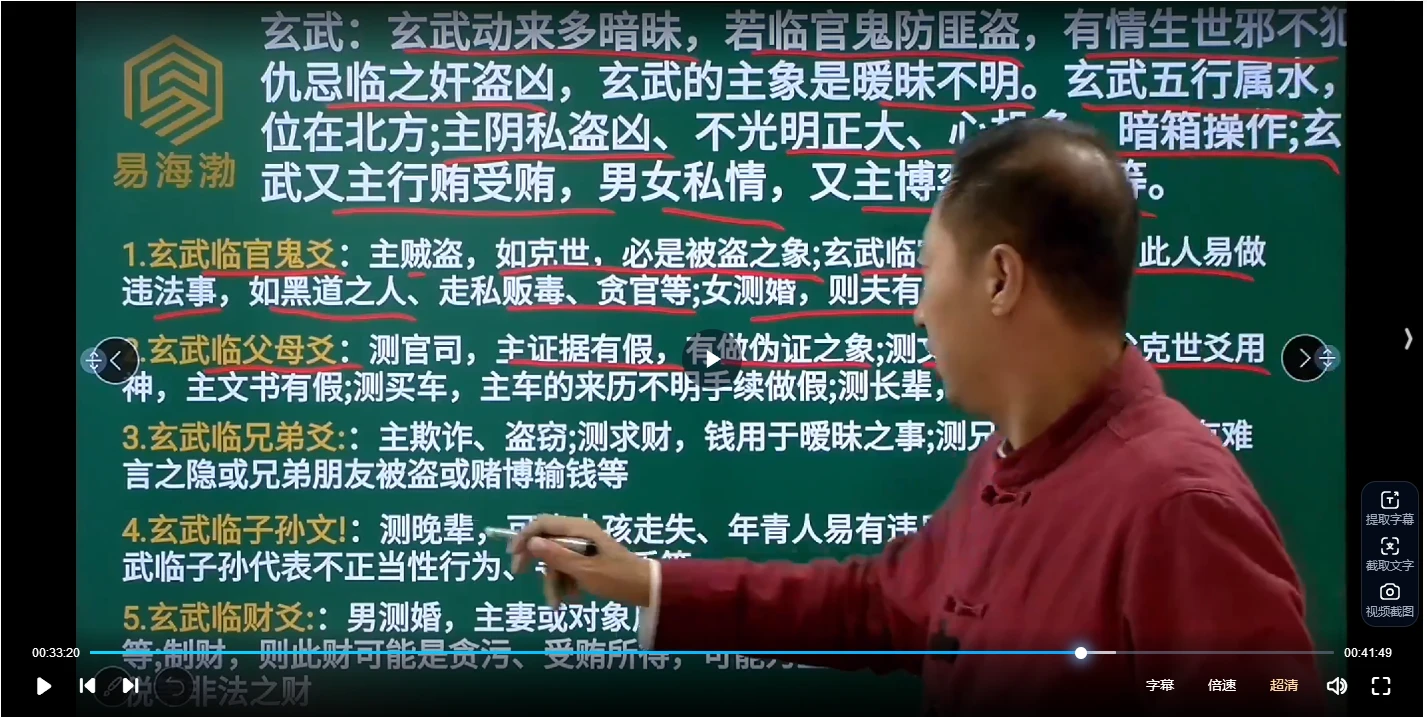 玄武：玄武动来多暗昧，若临官鬼防匪盗，有情生世邪不犯
仇忌临之奸盗凶，玄武的主象是暧昧不明。玄武五行属水，
位在北方;主阴私盗凶、不光明正大、心 暗箱操作;玄
武又主行贿受贿，男女私情，又主博 等。
易海渤
1.玄武临官鬼爻：主贼盗，如克世，必是被盗之象;玄武临 此人易做
违法事，如黑道之人、走私贩毒、贪官等;女测婚，则夫有
.玄武临父母爻：测官司，主证据有假，有做伪证之象;测 克世爻用
神，主文书有假;测买车，主车的来历不明手续做假;测长辈，
3.玄武临兄弟爻:：主欺诈、盗窃;测求财，钱用于暧昧之事;测兄 难
言之隐或兄弟朋友被盗或赌博输钱等
4.玄武临子孙文!：测晚辈， 孩走失、年青人易有违
武临子孙代表不正当性行为、
5.玄武临财爻:：男测婚，主妻或对象
等;制财，则此财可能是贪污、受贿所得，可能为
税 非法之财
提取字幕
截取文字
视频截图
00:33:20
00:41:49
字幕
倍速
超清